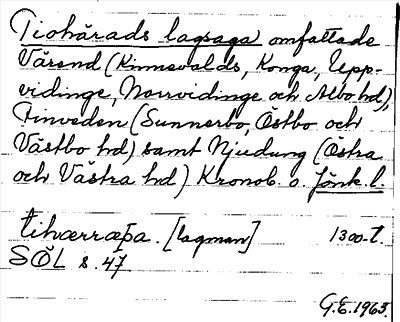 Tiohärads lagsaga omfattade
Värend (Kinnevalds, Konga, Upp-
vidinge, Norrvidinge och Albo hd),
Finveden (Sunnerbo, Östbo och
Västbo hd) samt Njudung (Östra
och Västra hd) Kronob. o. Jönk. l.
tihærræþa. [lagman] 1300-t.
SÖL s. 47
G.E. 1963.